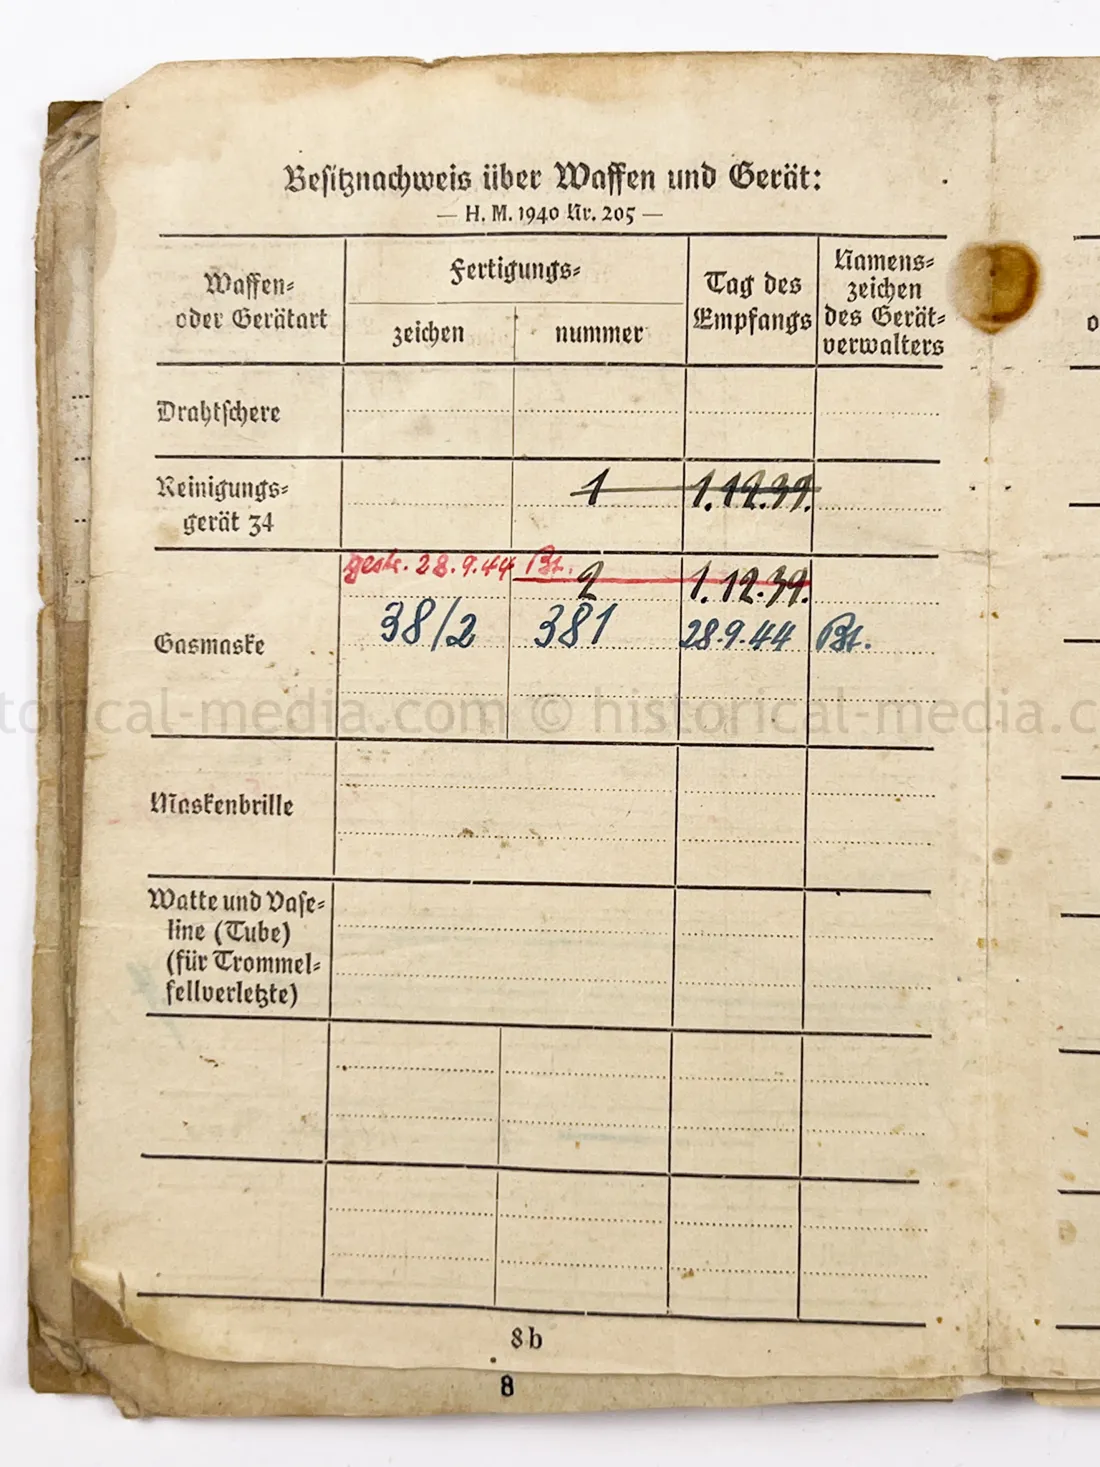 Besitznachweis über Waffen und Gerät:
— H. M. 1940 Nr. 205 —
Waffen-
oder Gerätart
Fertigungs-
zeichen
nummer
Tag des
Empfangs
Namens-
zeichen
des Gerät-
verwalters
Drahtschere
Reinigungs-
gerät 34
1
1.12.39.
gestr. 28.9.44 Bt.
2
1.12.39.
Gasmaske
38/2
381
28.9.44
Bt.
historical-media.com © historical-media.c
Maskenbrille
Watte und Vase-
line (Tube)
(für Trommel-
fellverletzte)
8b
8